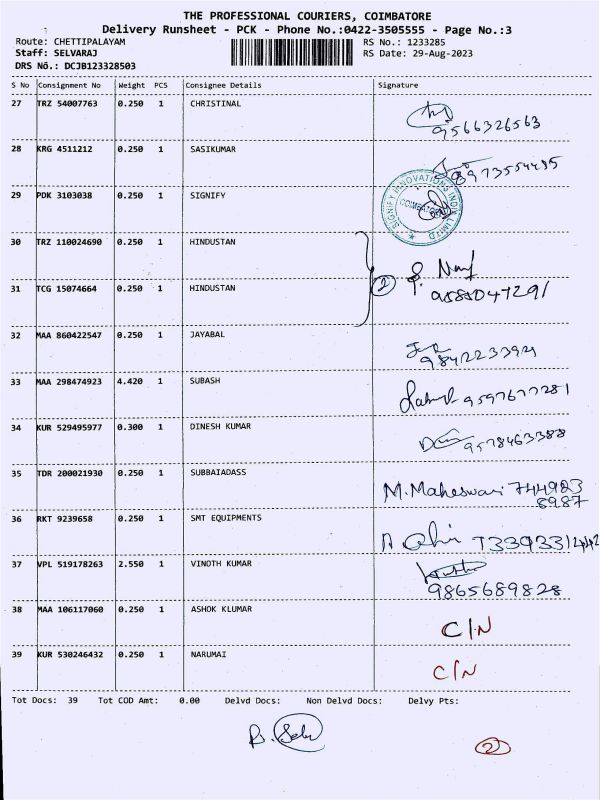 THE PROFESSIONAL COURIERS, COIMBATORE
Delivery Runsheet - PCK - Phone No.:0422-3505555 - Page No.:3
Route: CHETTIPALAYAM RS No.: 1233285
Staff: SELVARAJ RS Date: 29-Aug-2023
DRS No.: DCJB123328503
S No Consignment No Weight PCS Consignee Details Signature
27 TRZ 54007763 0.250 1 CHRISTINAL
9566326563
28 KRG 4511212 0.250 1 SASIKUMAR
29 PDK 3103038 0.250 1 SIGNIFY
SIGNIFY INNOVATIONS INDIA LIMITED
COIMBATORE
30 TRZ 110024690 0.250 1 HINDUSTAN
31 TCG 15074664 0.250 1 HINDUSTAN
2
9585047291
32 MAA 860422547 0.250 1 JAYABAL
33 MAA 298474923 4.420 1 SUBASH
9597677281
34 KUR 529495977 0.300 1 DINESH KUMAR
9578463388
35 TDR 200021930 0.250 1 SUBBAIADASS
M.Maheswari 744983
8987
36 RKT 9239658 0.250 1 SMT EQUIPMENTS
37 VPL 519178263 2.550 1 VINOTH KUMAR
9865689828
38 MAA 106117060 0.250 1 ASHOK KLUMAR
C/N
39 KUR 530246432 0.250 1 NARUMAI
C/N
Tot Docs: 39 Tot COD Amt: 0.00 Delvd Docs: Non Delvd Docs: Delvy Pts:
2